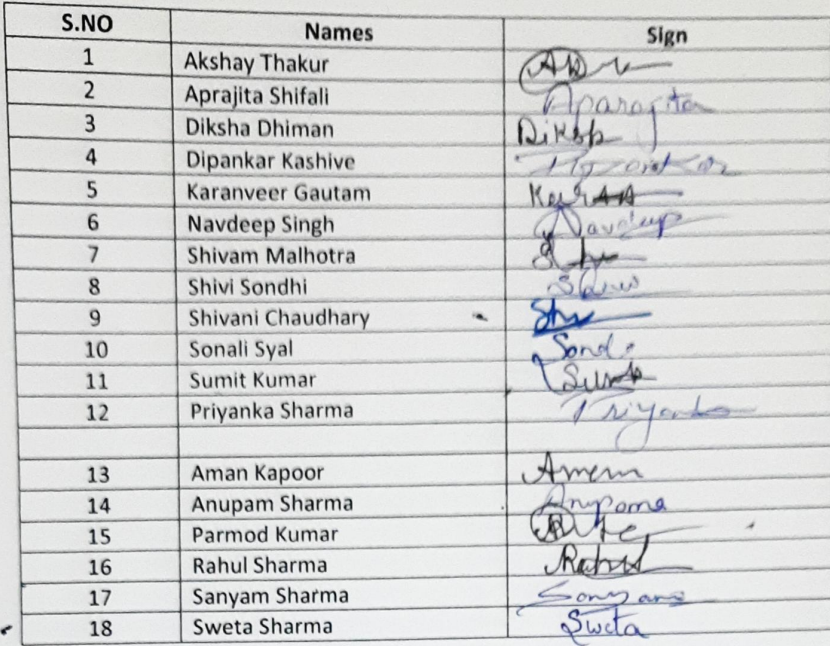 S.NO Names Sign
1 Akshay Thakur
2 Aprajita Shifali Aparajita
3 Diksha Dhiman
4 Dipankar Kashive
5 Karanveer Gautam Karan
6 Navdeep Singh Navdeep
7 Shivam Malhotra
8 Shivi Sondhi
9 Shivani Chaudhary
10 Sonali Syal
11 Sumit Kumar
12 Priyanka Sharma Priyanka
13 Aman Kapoor Aman
14 Anupam Sharma Anupama
15 Parmod Kumar
16 Rahul Sharma Rahul
17 Sanyam Sharma Sanyam
18 Sweta Sharma Sweta